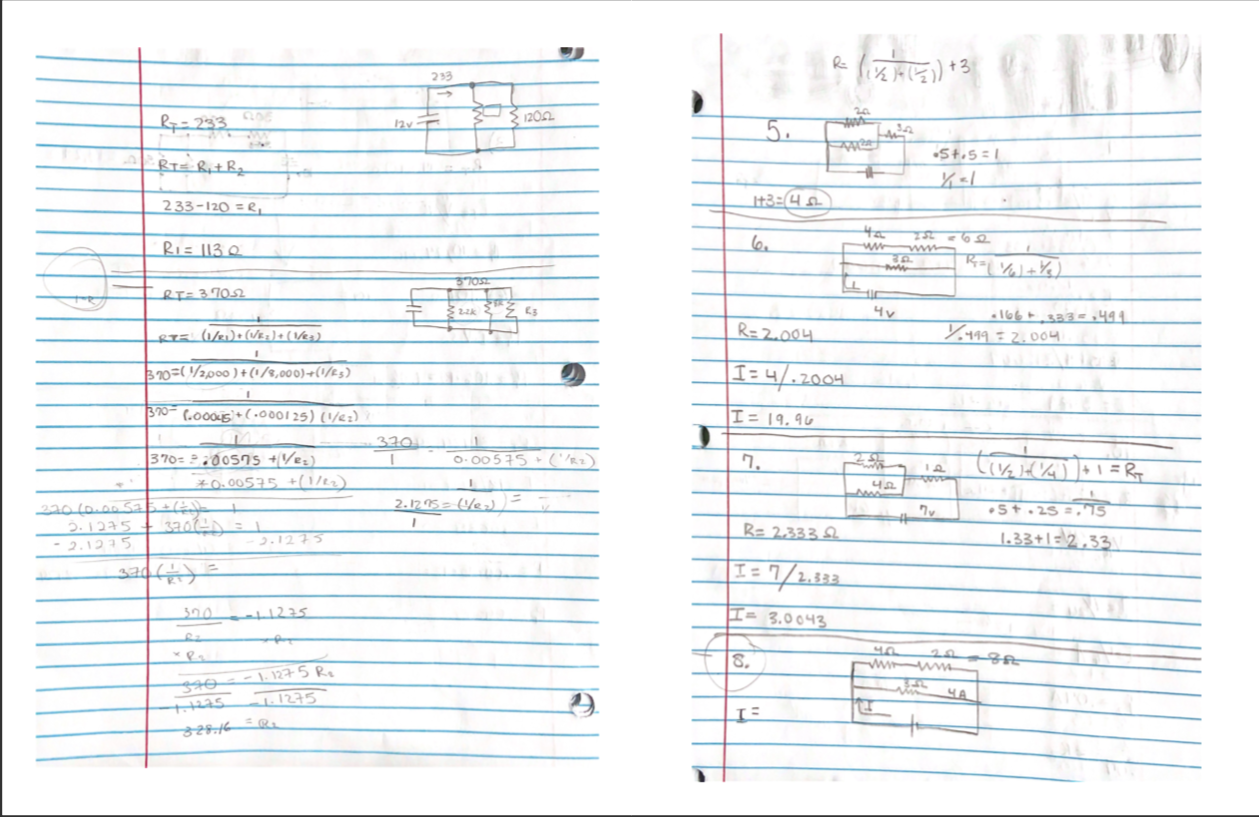 233
12v
120Ω
RT = 233
RT = R1 + R2
233-120 = R1
R1 = 113 Ω
RT = 370Ω
370Ω
2.2K
R3
RT = 1/((1/R1)+(1/R2)+(1/R3))
370 = 1/((1/2,000)+(1/8,000)+(1/R3))
370 = (.000125) (1/R2)
370 = .00575 + (1/R2)
370/1 1/(0.00575 + (1/R2))
*0.00575 + (1/R2)
370 (0.00575 + (1/R2) = 1
2.1275 = (1/R2) =
2.1275 + 370(1/R2) = 1
- 2.1275 - 2.1275
370 (1/R2) =
370/R2 = -1.1275
× R2 × R2
370/-1.1275 = -1.1275 R2/-1.1275
328.16 = R2
R= (1/((1/2)+(1/2))) + 3
5.
2Ω
3Ω
2Ω
.5+.5 = 1
1/1 = 1
1+3 = 4 Ω
6.
4Ω 2Ω = 6Ω
3Ω
RT = 1/((1/6) + 1/3)
4v
.166 + .333 = .499
R= 2.004
1/.499 = 2.004
I = 4/.2004
I = 19.96
7.
2Ω
1Ω
4Ω
7v
(1/((1/2)+(1/4))) + 1 = RT
.5 + .25 = 1/.75
R= 2.333 Ω
1.33+1 = 2.33
I = 7/2.333
I = 3.0043
8.
4Ω 2Ω = 8Ω
8Ω 4A
I
I =